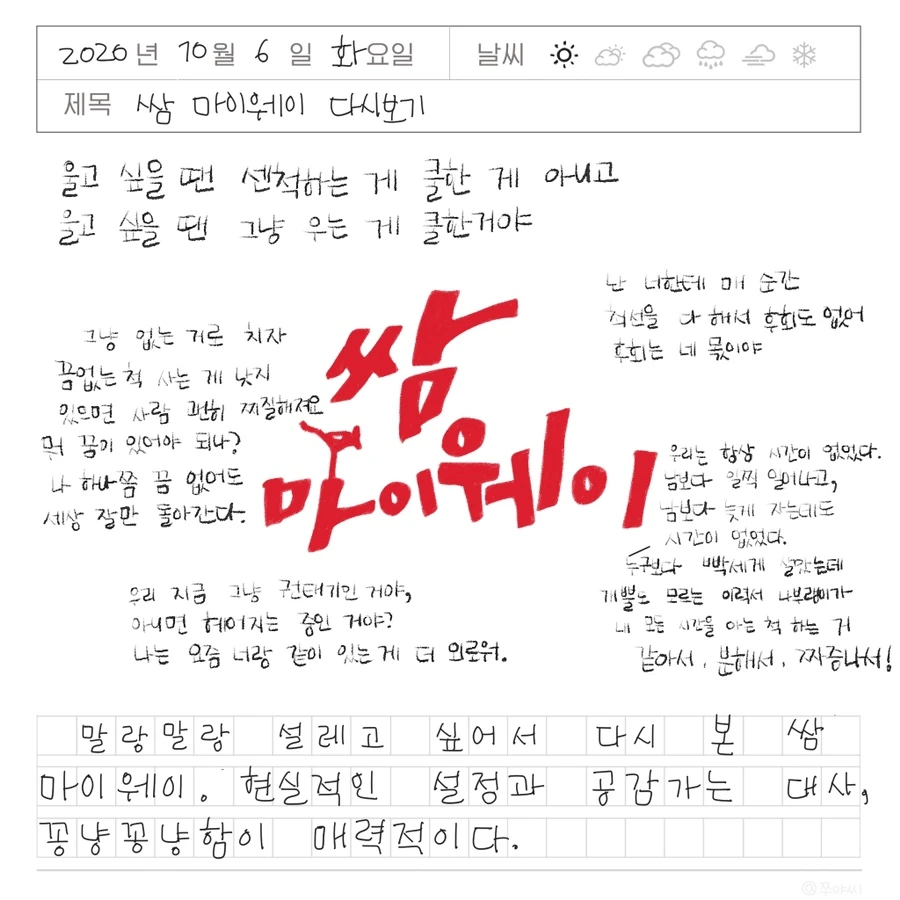 2020년 10월 6일 화요일 날씨
제목 쌈 마이웨이 다시보기
울고 싶을 땐 센척하는 게 쿨한 게 아니고
울고 싶을 땐 그냥 우는 게 쿨한거야
난 너한테 매 순간
최선을 다 해서 후회도 없어
후회는 네 몫이야
그냥 없는 거로 치자
꿈없는 척 사는 게 낫지
있으면 사람 괜히 찌질해져요
뭐 꿈이 있어야 되나?
나 하나쯤 꿈 없어도
세상 잘만 돌아간다.
쌈
마이웨이
우리는 항상 시간이 없었다.
남보다 일찍 일어나고,
남보다 늦게 자는데도
시간이 없었다.
누구보다 빡세게 살았는데
개뿔도 모르는 이력서 나부랭이가
내 모든 시간을 아는 척 하는 거
같아서, 분해서, 짜증나서!
우리 지금 그냥 권태기인 거야,
아니면 헤어지는 중인 거야?
나는 요즘 너랑 같이 있는게 더 외로워.
말랑말랑 설레고 싶어서 다시 본 쌈
마이웨이. 현실적인 설정과 공감가는 대사,
꽁냥꽁냥함이 매력적이다.
@쪼야씨